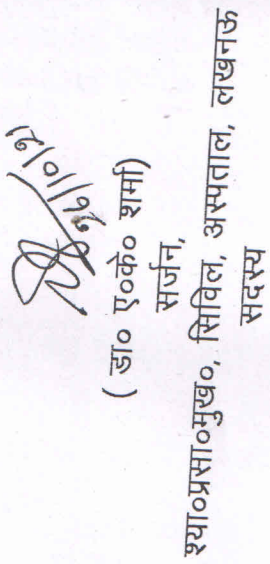 ( डा० ए०के० शर्मा)
सर्जन,
श्या०प्रसा०मुख०, सिविल, अस्पताल, लखनऊ
सदस्य